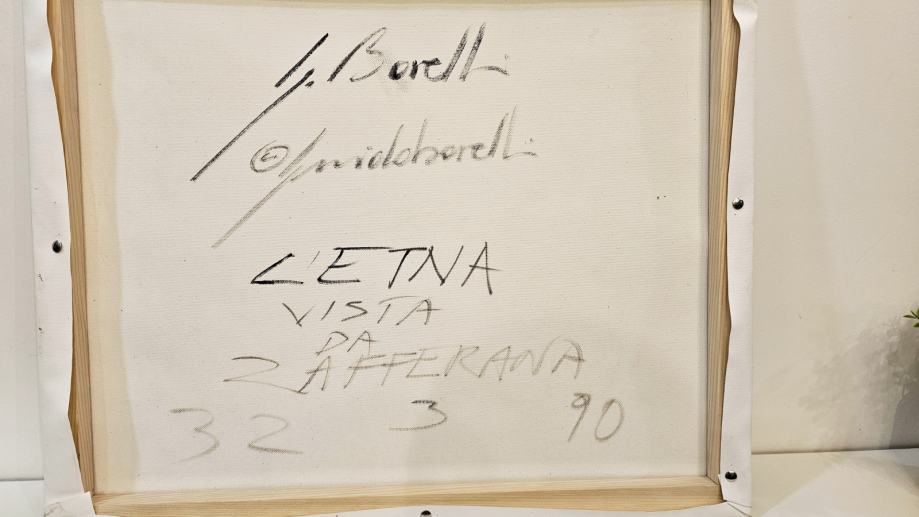 G. Borelli
© guidoborelli
L'ETNA
VISTA
DA
ZAFFERANA
32 3 90